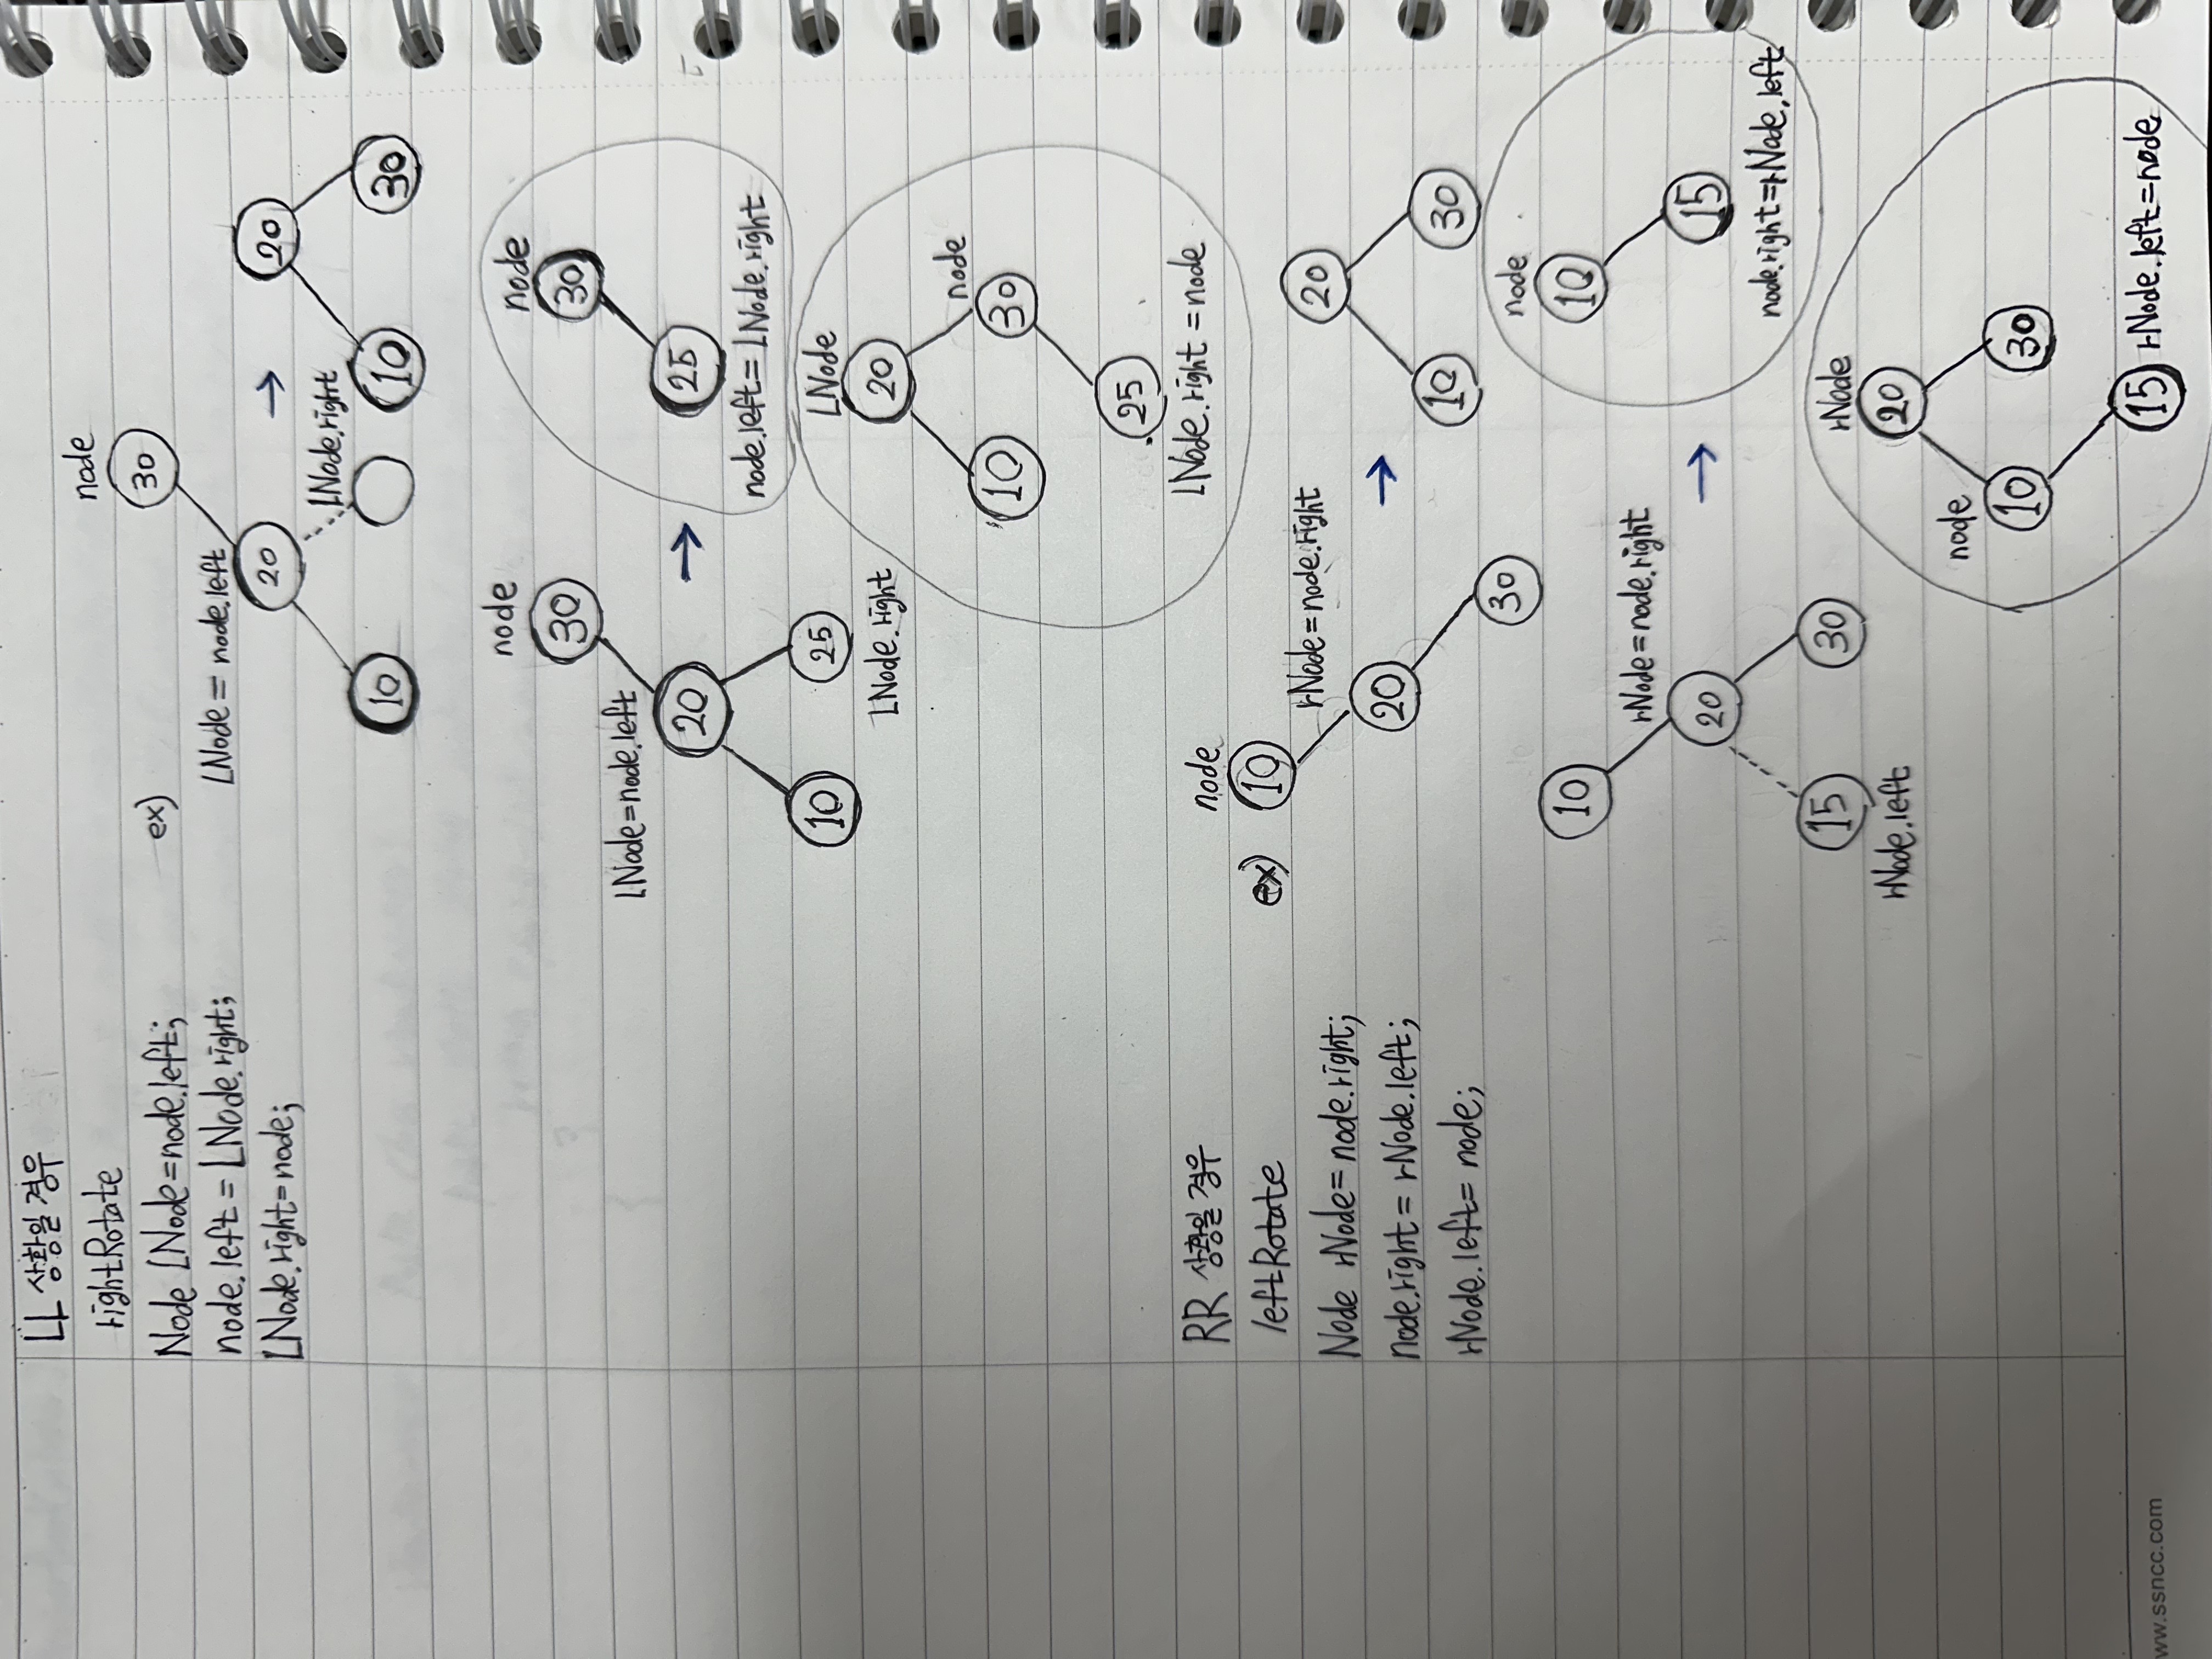 LL 상황일 경우
rightRotate
Node LNode=node.left;
node.left = LNode.right;
LNode.right=node;
ex)
node
30
LNode = node.left
20
→
20
LNode.right
10
10
30
node
30
LNode=node.left
20
10
25
LNode.right
→
node
30
25
node.left= LNode.right
LNode
20
node
10
30
25
LNode.right = node
RR 상황일 경우
leftRotate
Node rNode= node.right;
node.right = rNode.left;
rNode.left= node;
ex)
node
10
rNode=node.right
20
30
→
20
10
30
10
rNode=node.right
20
15
30
rNode.left
→
node
10
15
node.right=rNode.left
rNode
20
node
10
30
15 rNode.left=node
ww.ssncc.com